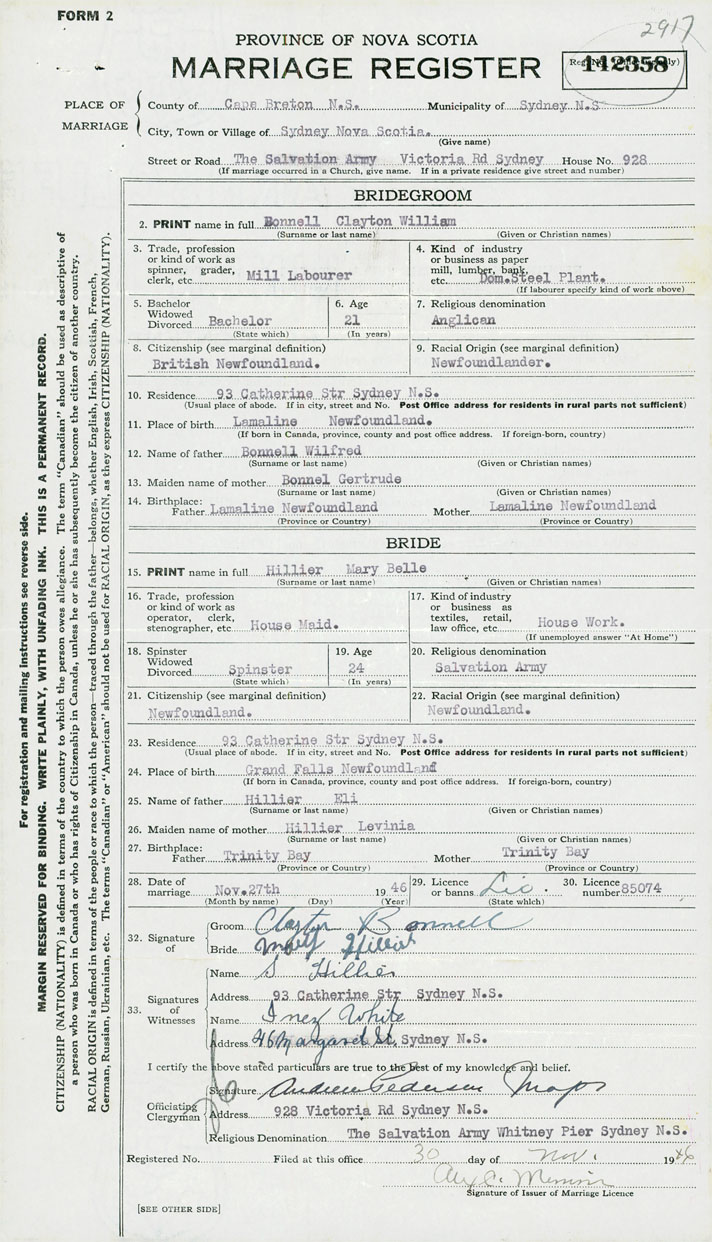 FORM 2
2917
PROVINCE OF NOVA SCOTIA
MARRIAGE REGISTER
142358
PLACE OF MARRIAGE
County of Cape Breton N.S. Municipality of Sydney N.S
City, Town or Village of Sydney Nova Scotia.
(Give name)
Street or Road The Salvation Army Victoria Rd Sydney House No. 928
(If marriage occurred in a Church, give name. If in a private residence give street and number)
BRIDEGROOM
2. PRINT name in full Bonnell Clayton William
(Surname or last name) (Given or Christian names)
3. Trade, profession or kind of work as spinner, grader, clerk, etc. Mill Labourer
4. Kind of industry or business as paper mill, lumber, bank, etc. Dom.Steel Plant.
(If labourer specify kind of work above)
5. Bachelor Widowed Divorced Bachelor
(State which)
6. Age 21
(In years)
7. Religious denomination
Anglican
8. Citizenship (see marginal definition)
British Newfoundland.
9. Racial Origin (see marginal definition)
Newfoundlander.
10. Residence 93 Catherine Str Sydney N.S.
(Usual place of abode. If in city, street and No. Post Office address for residents in rural parts not sufficient)
11. Place of birth Lamaline Newfoundland.
(If born in Canada, province, county and post office address. If foreign-born, country)
12. Name of father Bonnell Wilfred
(Surname or last name) (Given or Christian names)
13. Maiden name of mother Bonnel Gertrude
(Surname or last name) (Given or Christian names)
14. Birthplace: Father Lamaline Newfoundland Mother Lamaline Newfoundland
(Province or Country) (Province or Country)
BRIDE
15. PRINT name in full Hillier Mary Belle
(Surname or last name) (Given or Christian names)
16. Trade, profession or kind of work as operator, clerk, stenographer, etc. House Maid.
17. Kind of industry or business as textiles, retail, law office, etc. House Work.
(If unemployed answer "At Home")
18. Spinster Widowed Divorced Spinster
(State which)
19. Age 24
(In years)
20. Religious denomination
Salvation Army
21. Citizenship (see marginal definition)
Newfoundland.
22. Racial Origin (see marginal definition)
Newfoundland.
23. Residence 93 Catherine Str Sydney N.S.
(Usual place of abode. If in city, street and No. Post Office address for residents in rural parts not sufficient)
24. Place of birth Grand Falls Newfoundland
(If born in Canada, province, county and post office address. If foreign-born, country)
25. Name of father Hillier Eli
(Surname or last name) (Given or Christian names)
26. Maiden name of mother Hillier Levinia
(Surname or last name) (Given or Christian names)
27. Birthplace: Father Trinity Bay Mother Trinity Bay
(Province or Country) (Province or Country)
28. Date of marriage Nov.27th 1946
(Month by name) (Day) (Year)
29. Licence or banns Lic.
(State which)
30. Licence number 85074
32. Signature of
Groom Clayton Bonnell
Bride Mary Hillier
33. Signatures of Witnesses
Name S Hillier
Address 93 Catherine Str Sydney N.S.
Name Inez White
Address 46 Margaret St. Sydney N.S.
I certify the above stated particulars are true to the best of my knowledge and belief.
Officiating Clergyman
Signature Andrew Pedersen Major
Address 928 Victoria Rd Sydney N.S.
Religious Denomination The Salvation Army Whitney Pier Sydney N.S.
Registered No. Filed at this office 30 day of Nov. 1946
Signature of Issuer of Marriage Licence
[SEE OTHER SIDE]
For registration and mailing instructions see reverse side.
MARGIN RESERVED FOR BINDING. WRITE PLAINLY, WITH UNFADING INK. THIS IS A PERMANENT RECORD.
CITIZENSHIP (NATIONALITY) is defined in terms of the country to which the person owes allegiance. The term "Canadian" should be used as descriptive of
a person who was born in Canada or who has rights of Citizenship in Canada, unless he or she has subsequently become the citizen of another country.
RACIAL ORIGIN is defined in terms of the people or race to which the person—traced through the father—belongs, whether English, Irish, Scottish, French,
German, Russian, Ukrainian, etc. The terms "Canadian" or "American" should not be used for RACIAL ORIGIN, as they express CITIZENSHIP (NATIONALITY).